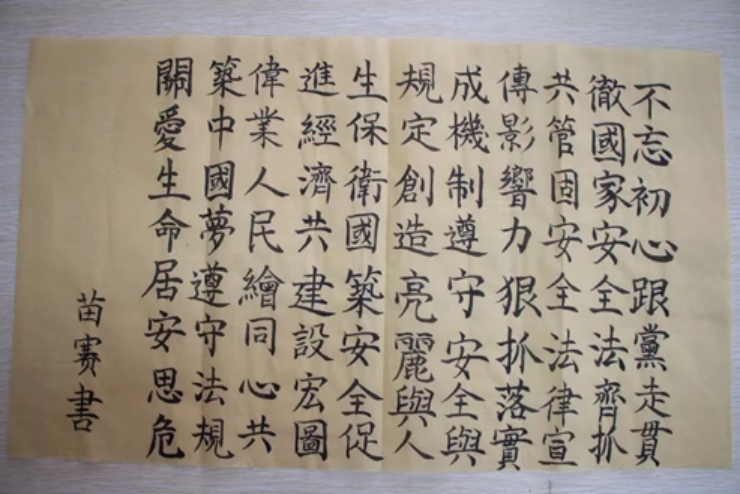 不忘初心跟黨走貫
徹國家安全法齊抓
共管固安全法律宣
傳影響力狠抓落實
成機制遵守安全與
規定創造亮麗與人
生保衛國築安全促
進經濟共建設宏圖
偉業人民繪同心共
築中國夢遵守法規
關愛生命居安思危
苗賽書